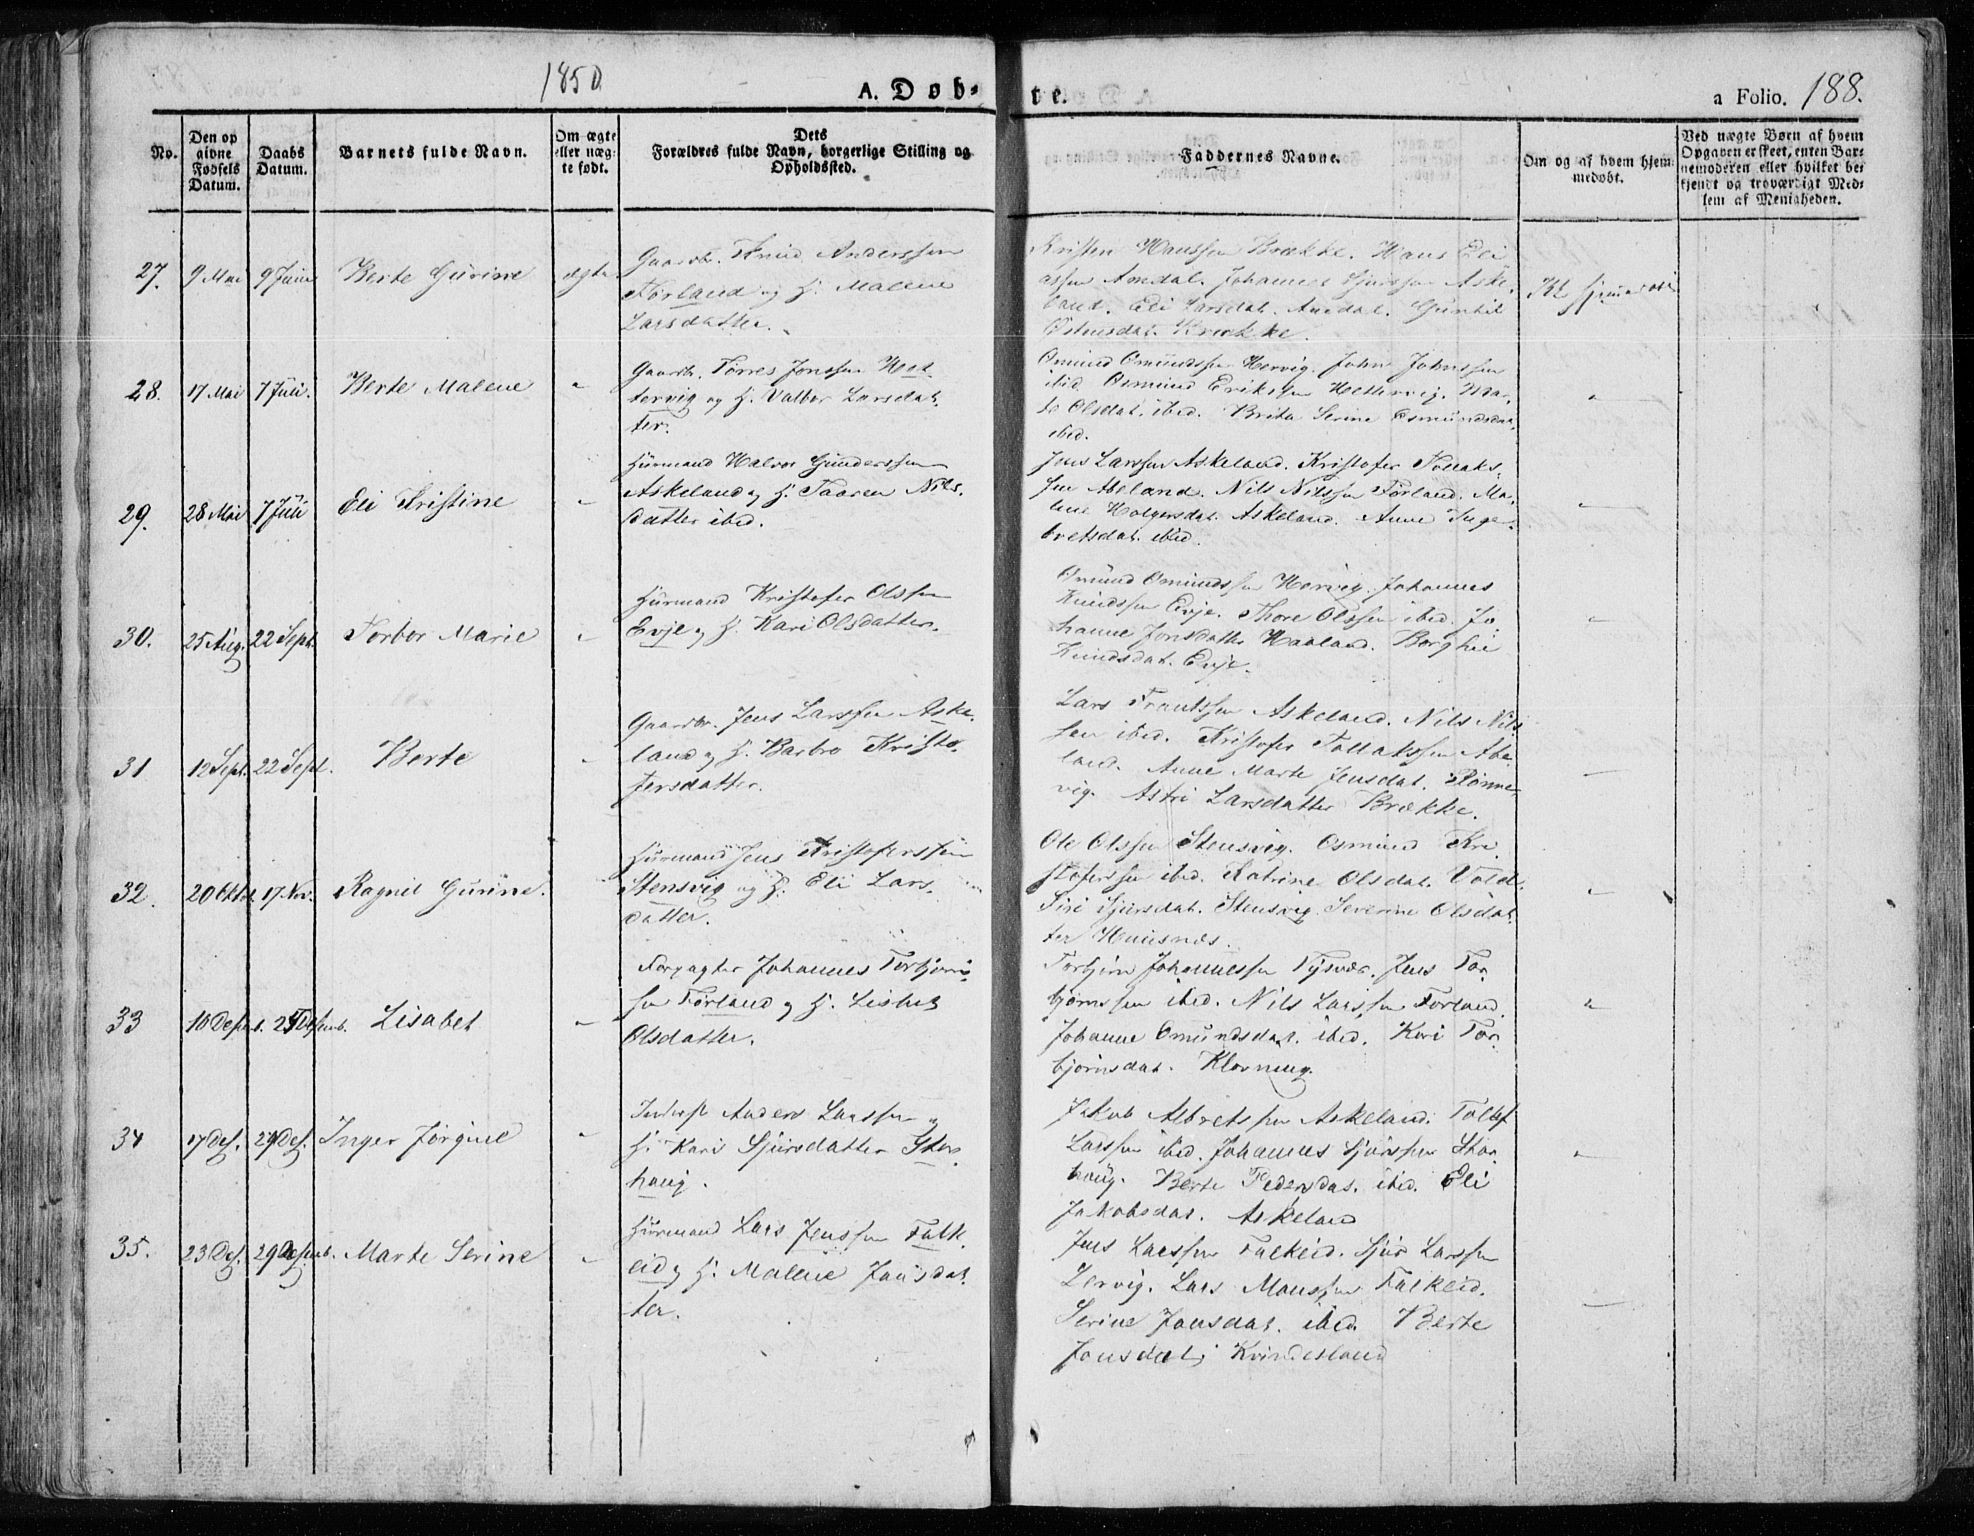 1850
A. Döb-
te.
a Folio. 188.
No.
Den op
givne
Fødsels
Datum.
Daabs
Datum.
Barnets fulde Navn.
Om ægte
eller uæg-
te født.
Dets
Forældres fulde Navn, borgerlige Stilling og
Opholdssted.
Faddernes Navne.
Om og af hvem hjem-
medøbt.
Ved uægte Børn af hvem
Opgaven er skeet, enten Bar-
nemoderen eller hvilket be-
kjendt og troværdigt Med-
lem af Menigheden.
27. 9 Mai 9 Juni Berte Gurine ægte
Gaardbr. Knud Anderssen
Førland og H. Malene
Larsdatter.
Kristen Hanssen Brække. Hans Eli
assen Amdal. Johannes Sjurssen Aske-
land. Eli Larsdat. Amdal. Gunhil
Østensdat. Brække.
28. 17 Mai 7 Juli. Berte Malene "
Gaardbr. Tørres Jonssen Het-
tervig og H. Valbor Larsdat-
ter.
Omund Omundssen Hervig. John Johnssen
ibid. Osmund Erikssen Hettervig. Mar-
te Olsdat. ibid. Brita Serine Osmundsdat.
ibid.
"
29. 28 Mai 7 Juli Eli Kristine "
Huusmand Halvor Gunderssen
Askeland og H. Taaren Nils-
datter ibid.
Jens Larssen Askeland. Kristofer Tollaks-
sen Abeland. Nils Nilssen Førland. Ma-
lene Holgersdat. Askeland. Anne Inge-
bretsdat. ibid.
30. 25 Aug. 22 Sept. Torbor Marie "
Huusmand Kristofer Olssen
Evje og H. Kari Olsdatter.
Osmund Omundssen Hervig. Johannes
Knudssen Evje. Thore Olssen ibid. Jo-
hanne Jonsdatter Haaland. Borghil
Knudsdat. Evje.
"
31 12 Sept. 22 Sept. Berte "
Gaardbr. Jens Larssen Aske-
land og H. Barbro Kristo-
fersdatter.
Lars Frantssen Askeland. Nils Nils
sen ibid. Kristofer Tollakssen Abe-
land. Anne Marte Jensdat. Rønne-
vig. Astri Larsdatter Brække.
32. 20 Oktob. 17 Nov. Ragnil Gurine.
Huusmand Jens Kristoferssen
Stensvig og H. Eli Lars-
datter.
Ole Olssen Stensvig. Osmund Kri
stoferssen ibid. Katrine Olsdat. Vold.
Siri Sjursdat. Stensvig. Severine Olsdat-
ter
33 Lisabet "
Forpagter Johannes Torbjørn-
sen Førland og H. Lisbet
Olsdatter.
Torbjørn Johannessen Tysvær. Jens Tor-
bjørnssen ibid. Nils Larssen Førland.
Johanne Omundsdat. ibid. Kari Tor-
bjørnsdat. Klovning.
"
34 17 Des. 29 Des. Inger Jørgine "
Inderst Anders Larssen og
H. Kari Sjursdatter Stor-
houg.
Jakob Albretssen Askeland. Tollef
Larssen ibid. Johannes Sjurssen Stor-
houg. Berte Pedersdat. ibid. Eli
Jakobsdat. Askeland
35. 23 Des. 29 Desemb. Marte Serine "
Huusmand Lars Jenssen Falk-
eid og H. Malene Jonsdat-
ter.
Jens Larssen Falkeid. Sjur Larssen
Lervig. Lars Monssen Falkeid.
Serine Jonsdat. ibid. Berte
Jonsdat. Kvindesland